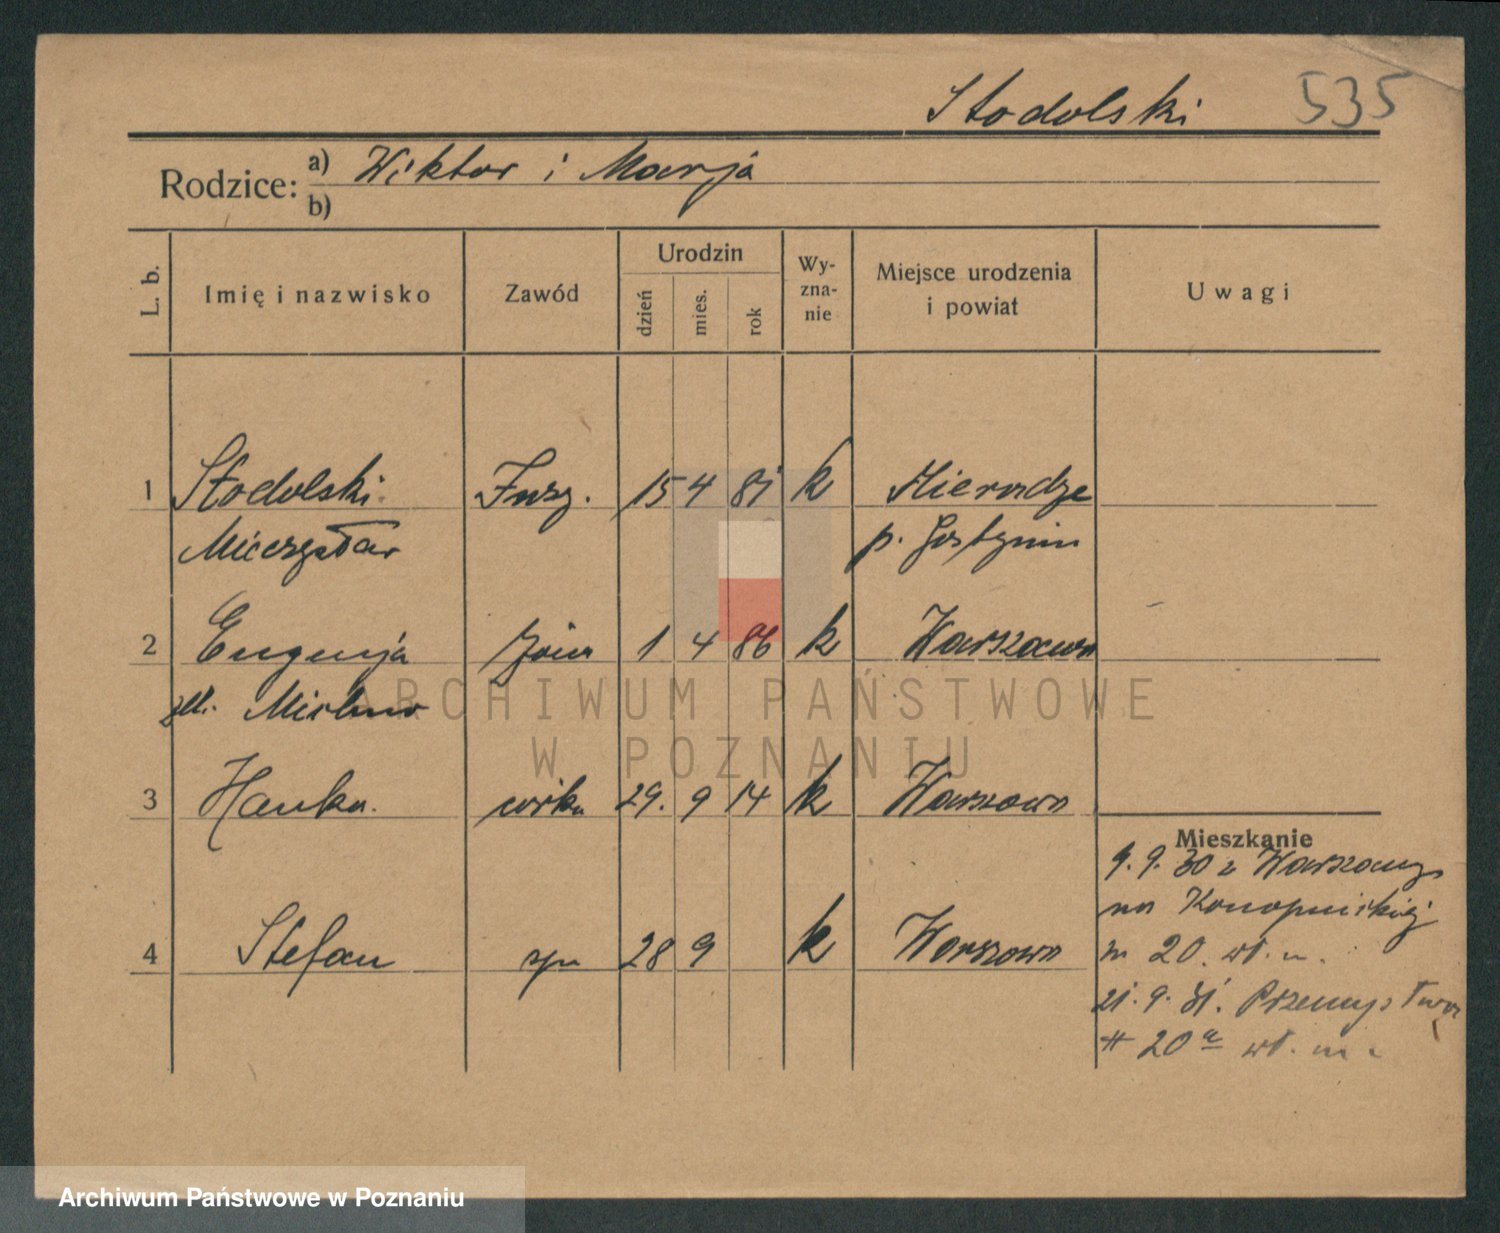 Stodolski 535
Rodzice: a) Wiktor i Marja
b)
L. b. Imię i nazwisko Zawód Urodzin dzień mies. rok Wy-zna-nie Miejsce urodzenia i powiat Uwagi
1 Stodolski 15 4 81 k
Mieczysław p. Gostynin
2 Eugenja żona 1 4 86 k Warszawa
3 Hanka. córka 29. 9 14 k Warszawa
4 Stefan syn 28 9 k Warszawa
Mieszkanie
9. 9. 30 z Warszawy
na Konopnickiej
20. wł. m.
21. 9. 31. Przemysłowa
20a wł. m.
ARCHIWUM PAŃSTWOWE
W POZNANIU
Archiwum Państwowe w Poznaniu